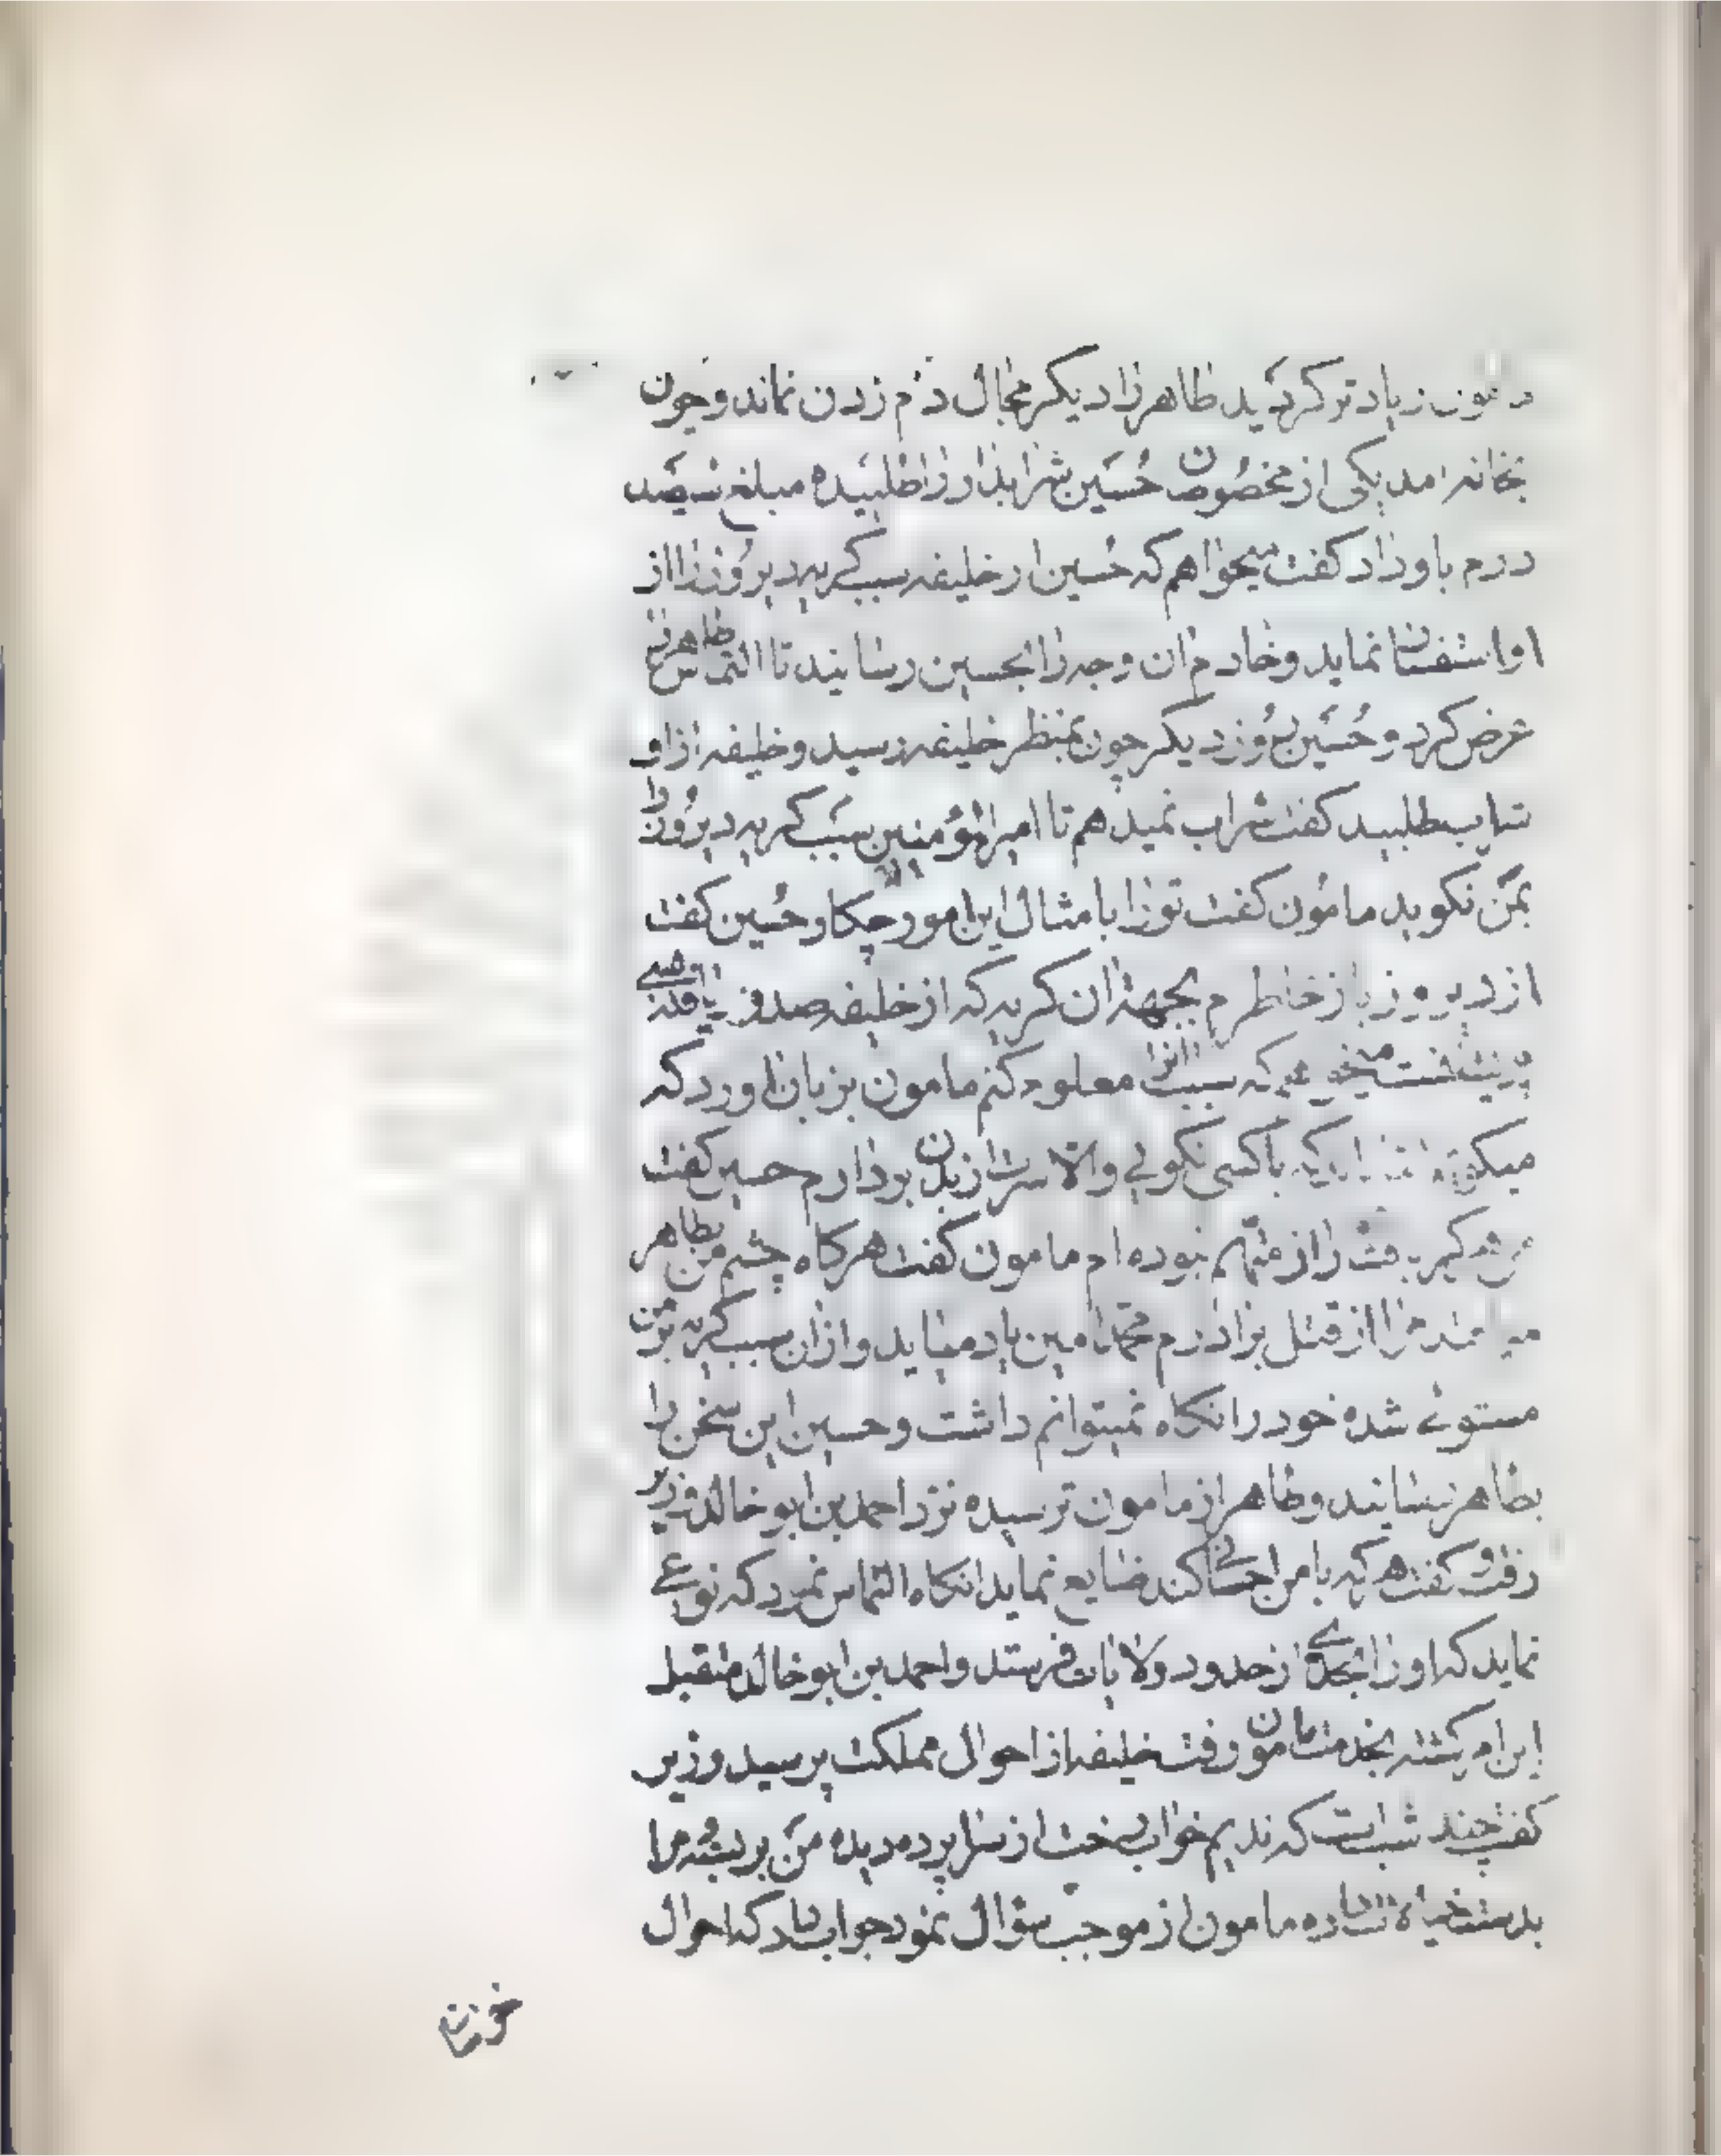 مامون زیادتر کردید طاهر را دیکر مجال دم زدن نماند و چون
بخانه امد یکی از مخصوصان حسین شرابدار را طلبیده مبلغ سیصد
درم باو داد کفت میخواهم که حسین از خلیفه سبب کریه دیروز را از
او استفسار نماید و خادم ان وجه را بحسین رسانید تا التماس طاهر
عرض کرد و حسین بروز دیکر چون بمنظر خلیفه رسید و خلیفه ازو
شراب طلبید کفت شراب نمیدهم تا امیرالمؤمنین سبب کریه دیروز را
بمن نکوید مامون کفت تو را بامثال این امور چکار حسین کفت
از دیروز باز خاطرم بجهة ان کریه که از خلیفه صدور یافته
که سبب انرا معلوم کنم مامون بزبان اورد که
باکسی نکویی والا سرت از بدن بردارم حسین کفت
را از متهم نبوده ام مامون کفت هرکاه چشم من بطاهر
مرا از قتل برادرم محمد امین یاد میاید و ازان سبب کریه بر من
مستولی شده خود را نکاه نمیتوانم داشت و حسین این سخن را
بطاهر رسانید و طاهر از مامون ترسیده نزد احمد بن ابو خالد وزیر
رفت و کفت هرکه با من احسانی کند ضایع نماید انکاه التماس نمود که نوعی
نماید که او را بحدی از حدود ولایات فرستد و احمد بن ابو خالد متقبل
این امر کشته بخدمت مامون رفت خلیفه از احوال مملکت پرسید وزیر
کفت چند شب است که ندیم خواب رخت از سرا پرده دیده من بر بسته مرا
بدست داده مامون از موجب سؤال نمود جواب داد که احوال
خراسان